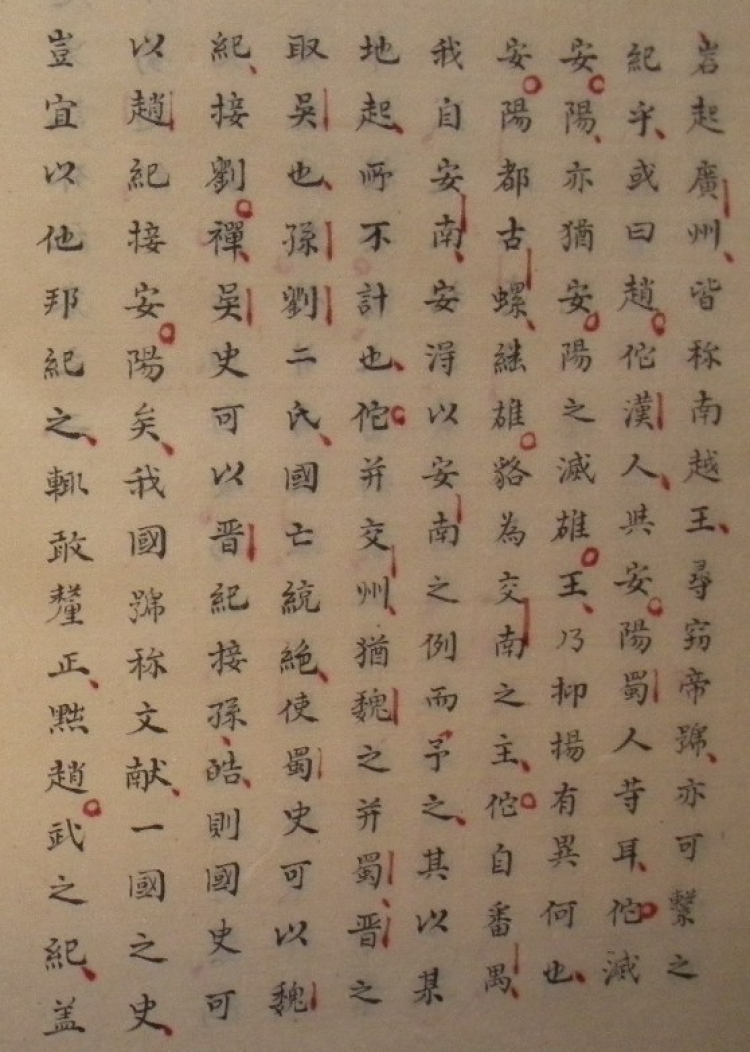 岩起廣州皆称南越王尋窃帝號亦可繫之
紀乎或曰趙佗漢人與安陽蜀人等耳佗滅
安陽亦猶安陽之滅雄王乃抑揚有異何也
安陽都古螺継雄貉為交南之主佗自番禺
我自安南安淂以安南之例而予之其以某
地起所不計也佗并交州猶魏之并蜀晋之
取吳也孫劉二氏國亡統絶使蜀史可以魏
紀接劉禪吳史可以晋紀接孫皓則國史可
以趙紀接安陽矣我國號称文献一國之史
豈宜以他邦紀之輙敢釐正黜趙武之紀盖